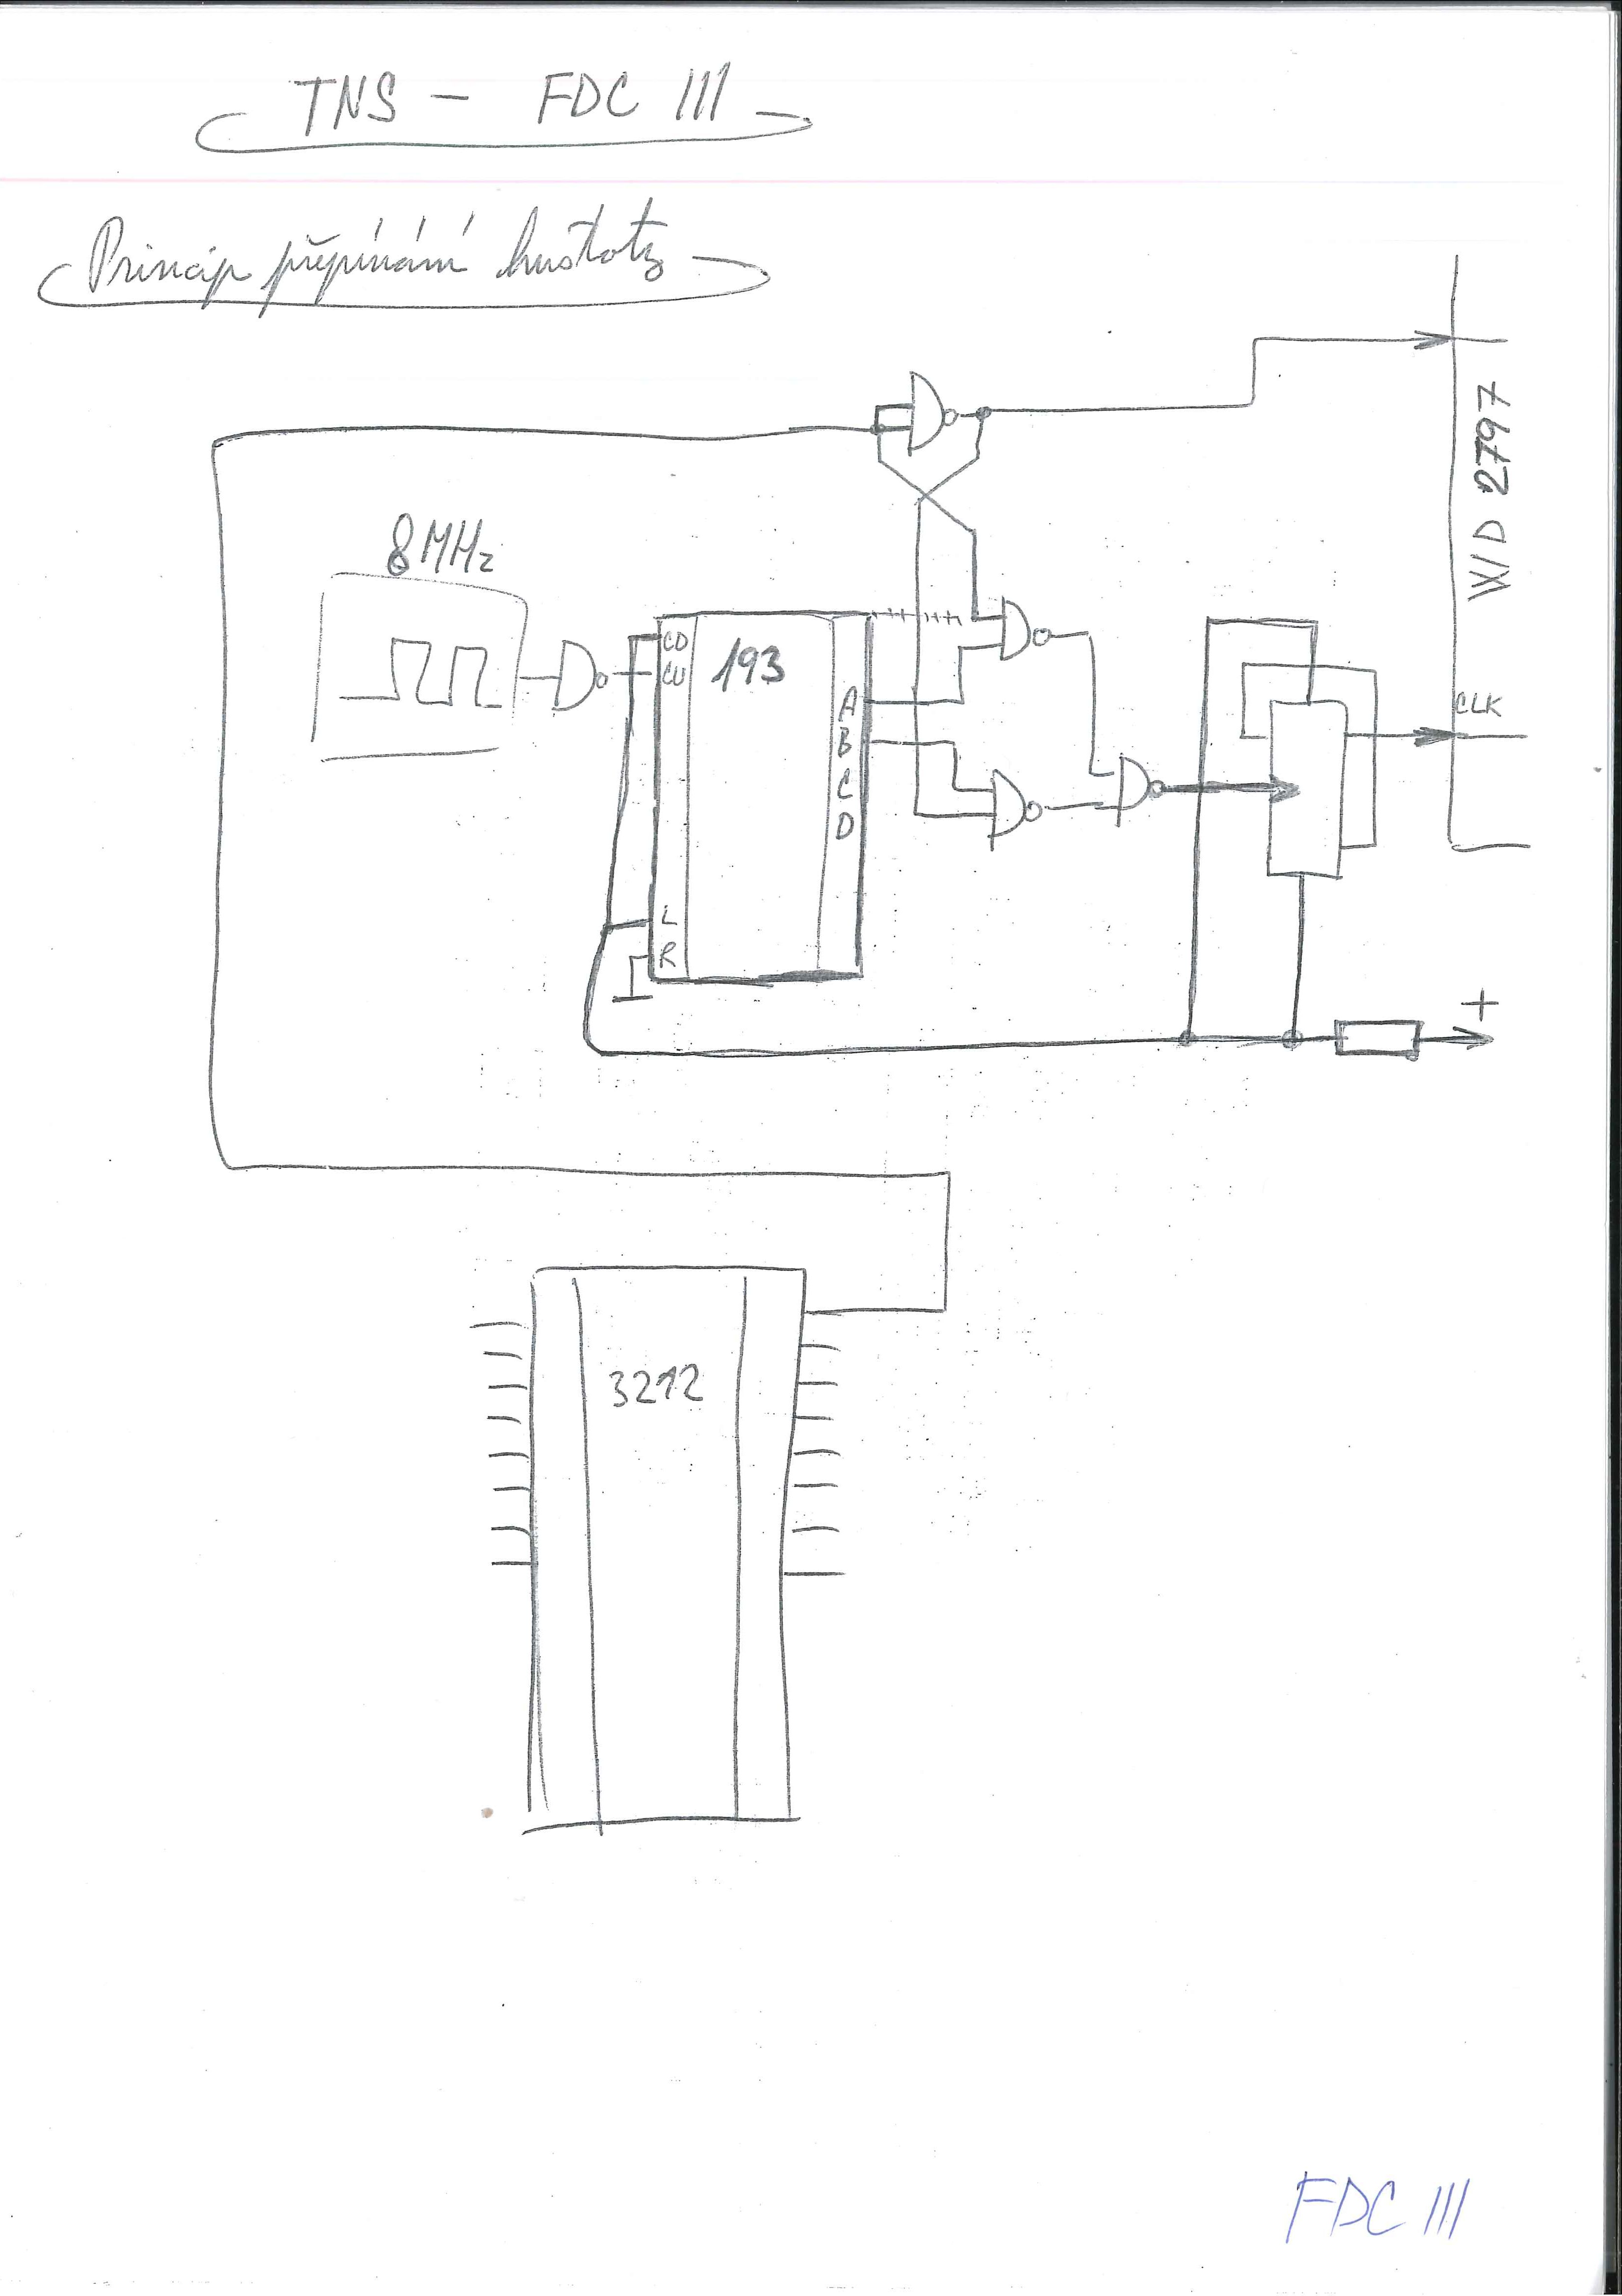 TNS - FDC III
Princip přepínání hustoty
8MHz
WD 2797
CD
CU
193
A
B
C
D
CLK
L
R
+
3212
FDC III